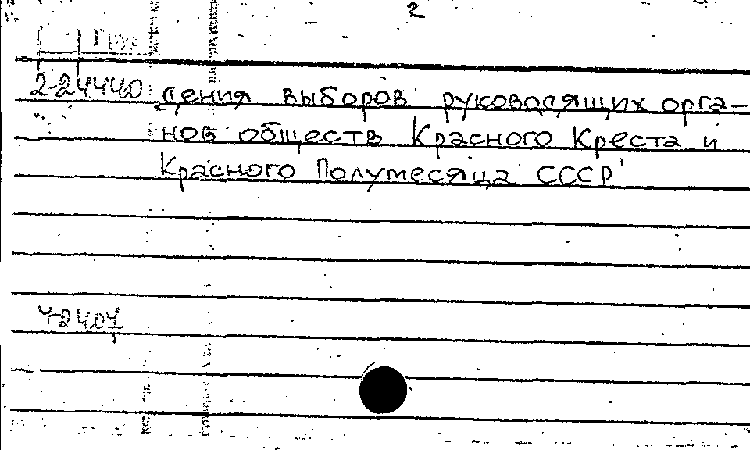 2
2-24440 дения выборов руководящих орга-
нов обществ Красного Креста и
Красного Полумесяца СССР